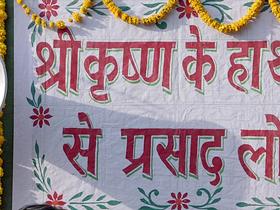 श्री कृष्ण के हाथ
से प्रसाद लो